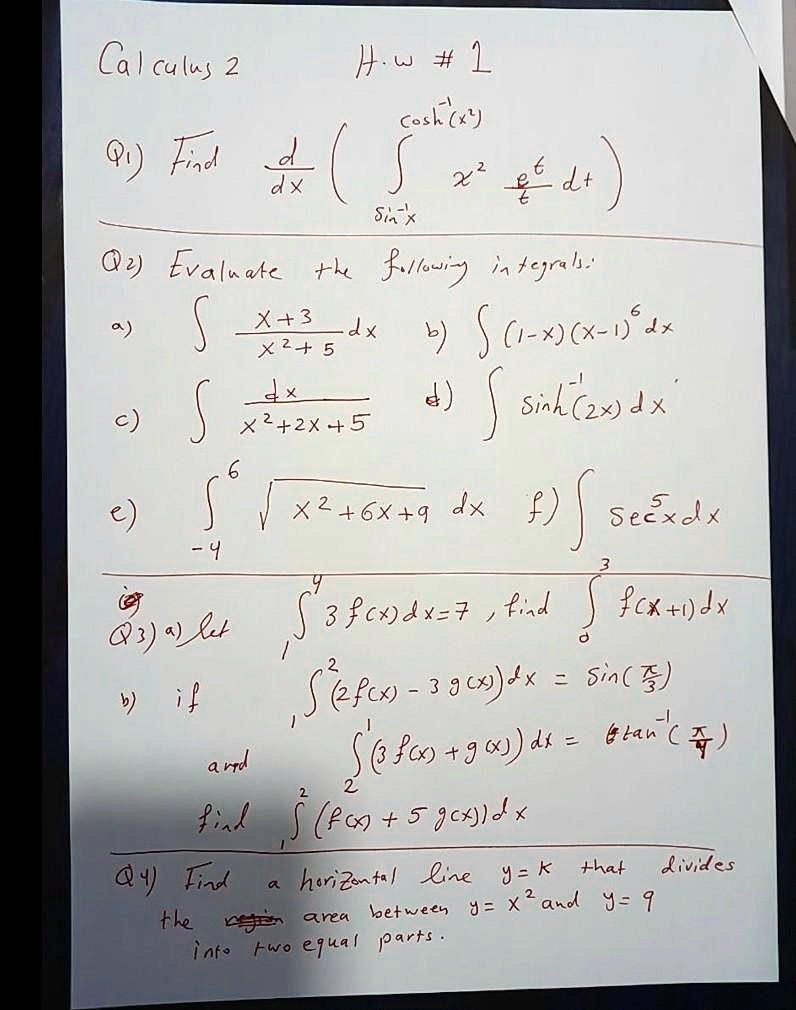 Calculus 2 H.w # 1
Q1) Find d/dx ( ∫_{sin⁻¹x}^{cosh⁻¹(x²)} x² e^t/t dt )
Q2) Evaluate the following integrals:
a) ∫ x+3/x²+5 dx b) ∫ (1-x)(x-1)⁶ dx
c) ∫ dx/x²+2x+5 d) ∫ sinh⁻¹(2x) dx
e) ∫_{-4}^{6} √x²+6x+9 dx f) ∫ sec⁵x dx
Q3) a) let ∫_{1}^{4} 3 f(x) dx = 7 , find ∫_{0}^{3} f(x+1) dx
b) if ∫_{1}^{2} (2f(x) - 3g(x)) dx = sin(π/3)
and ∫_{2}^{1} (3 f(x) + g(x)) dx = tan⁻¹(π/4)
find ∫_{1}^{2} (f(x) + 5 g(x)) dx
Q4) Find a horizontal line y=k that divides
the area between y= x² and y= 9
into two equal parts.